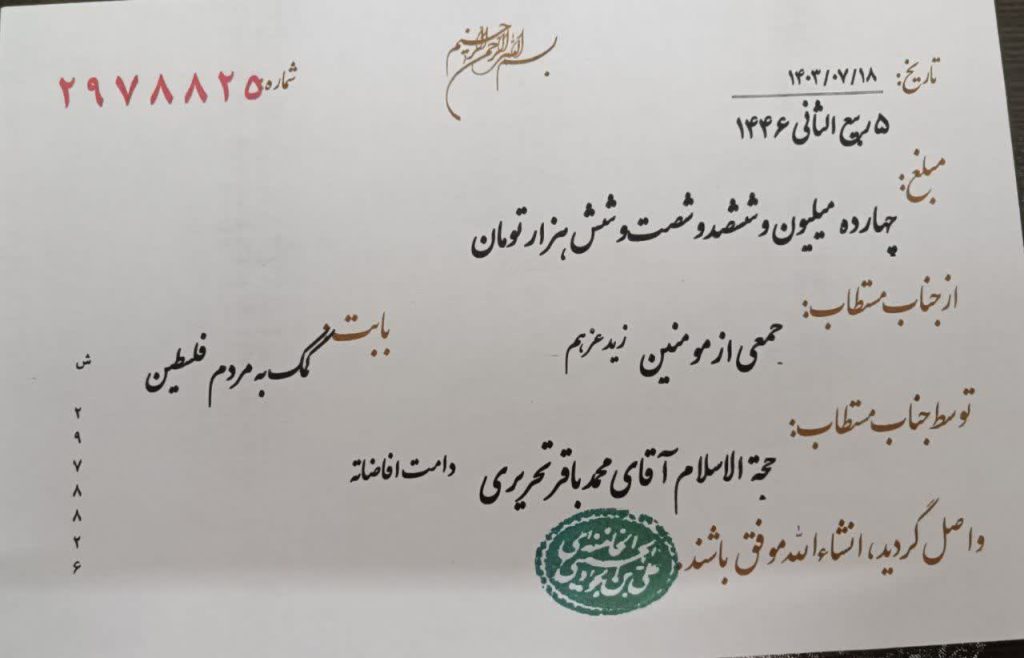 بسم الله الرحمن الرحیم
تاریخ: ۱۴۰۳/۰۷/۱۸
شماره: ۲۹۷۸۸۲۵
۵ ربیع الثانی ۱۴۴۶
مبلغ:
چهارده میلیون و ششصد و شصت و شش هزار تومان
از جناب مستطاب:
جمعی از مومنین زید عزهم
بابت:
کمک به مردم فلسطین
توسط جناب مستطاب:
حجة الاسلام آقای محمد باقر تحریری دامت افاضاته
واصل گردید، انشاءالله موفق باشند.
ش
۲
۹
۷
۸
۸
۲
۶